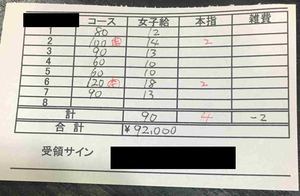 コース 女子給 本指 雑費
1 80 12
2 100 14 2
3 90 13
4 60 10
5 60 10
6 120 18 2
7 90 13
8
計 90 4 -2
合計 ¥92,000
受領サイン